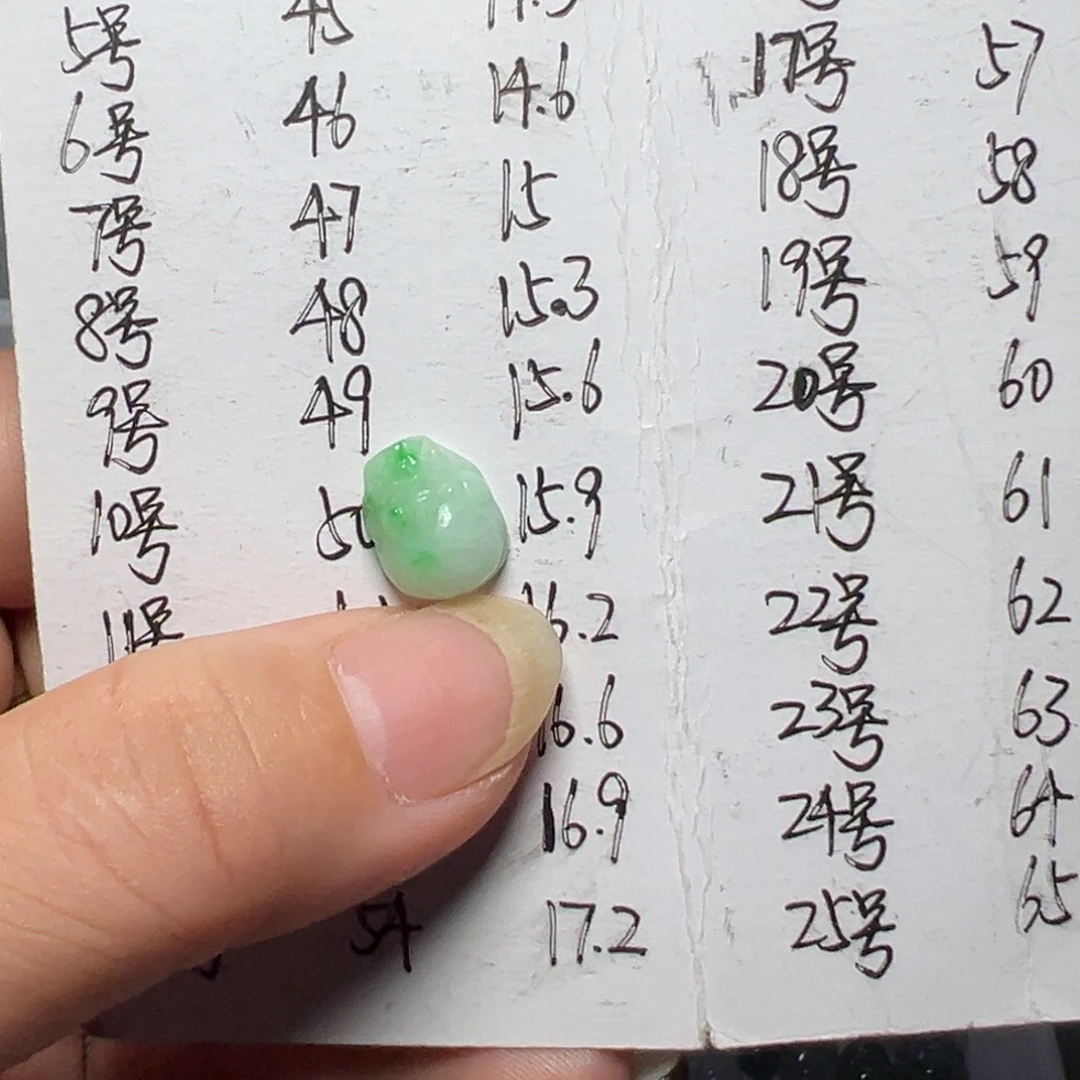 5号 45
6号 46 14.6 17号 57
7号 47 15 18号 58
8号 48 15.3 19号 59
9号 49 15.6 20号 60
10号 50 15.9 21号 61
11号 16.2 22号 62
16.6 23号 63
16.9 24号 64
54 17.2 25号 65